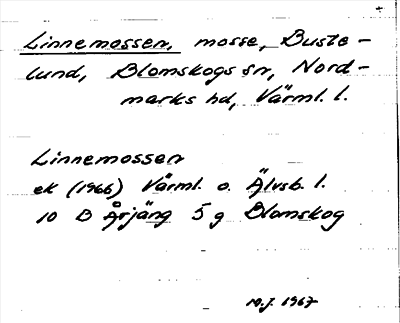 Linnemossen, mosse, Buste-
lund, Blomskogs sn, Nord-
marks hd, Värml. l.
Linnemossen
ek (1966) Värml. o. Älvsb. l.
10 B Årjäng 5 g Blomskog
1967